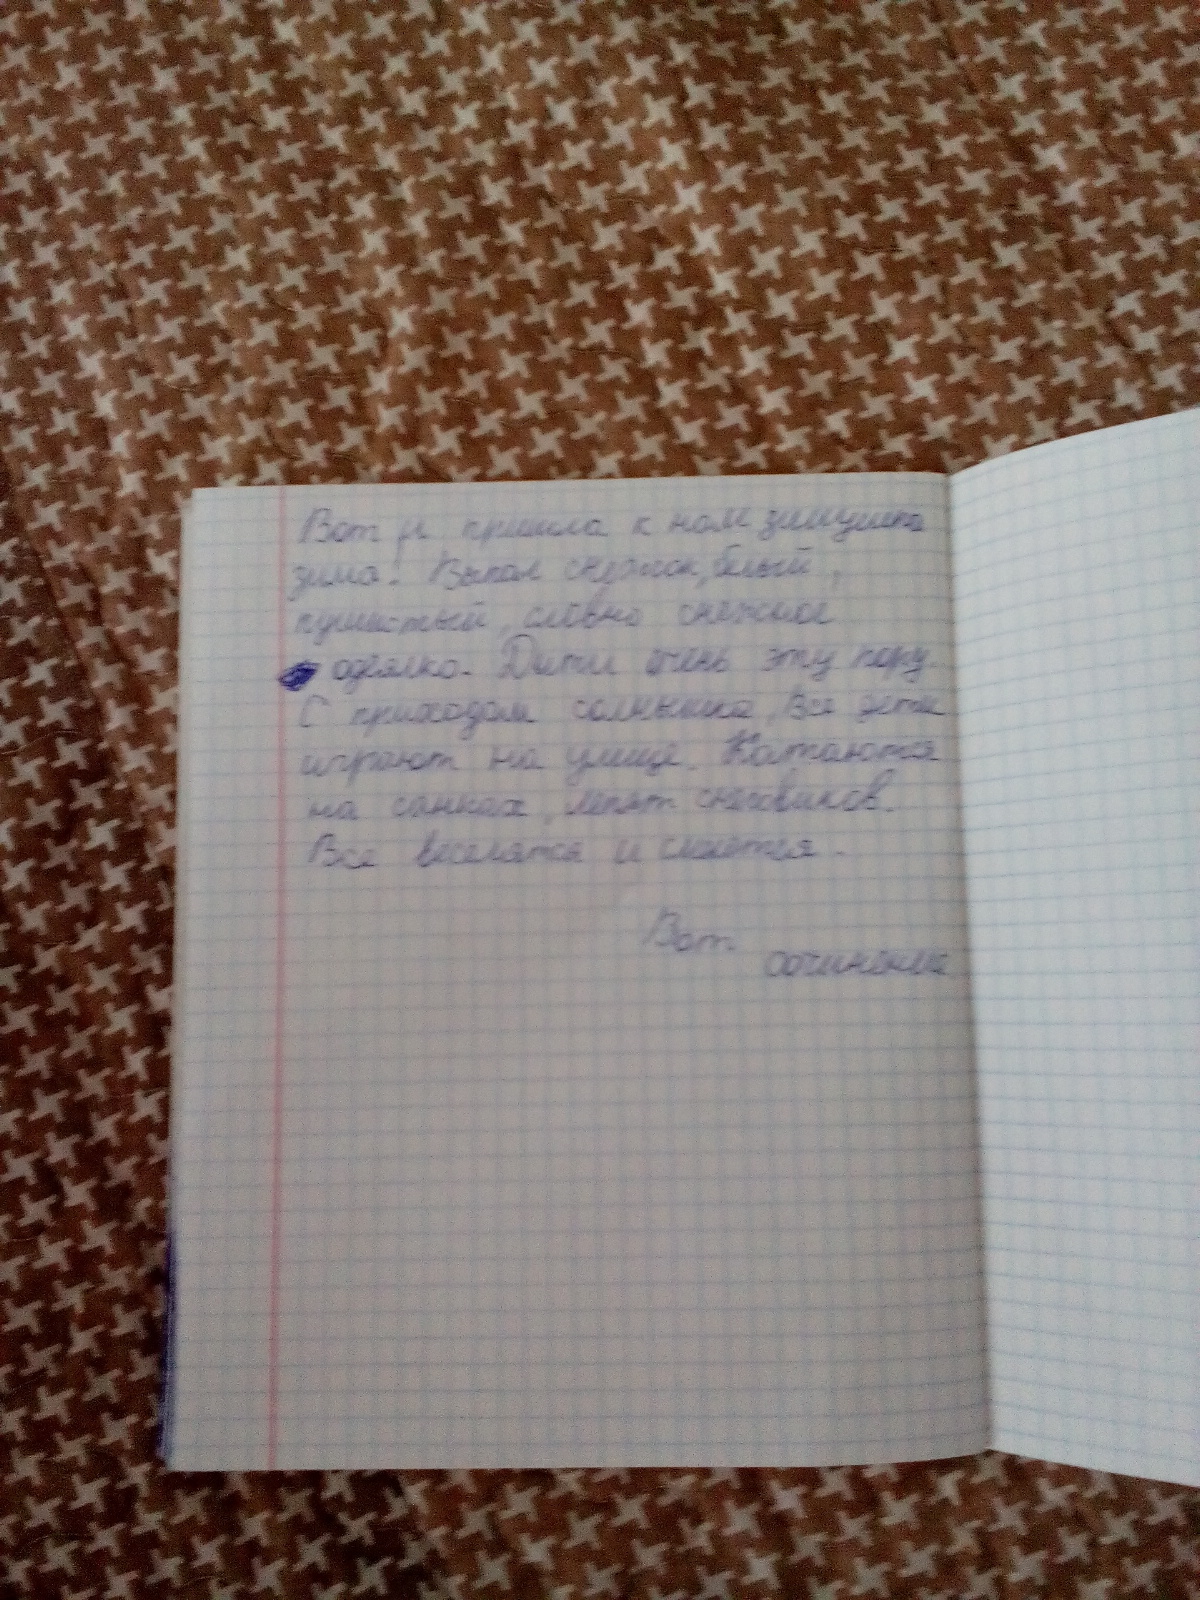 Вот и пришла к нам зимушка
зима! Выпал снежок, белый,
пушистый, словно снежное
одеялко. Дети очень эту пору.
С приходом солнышка, все дети
играют на улице. Катаются
на санках, лепят снеговиков.
Все веселятся и смеются.
Вот
сочинение